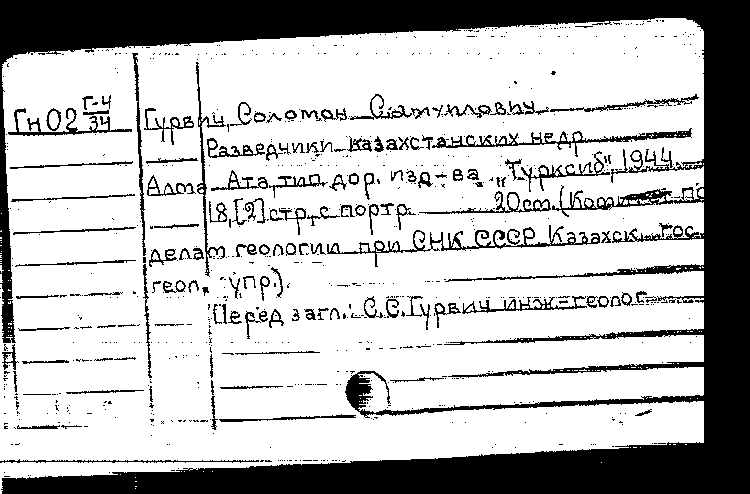 ГнО2 Г-4/34
Гурвич, Соломон Самуилович
Разведчики казахстанских недр
Алма-Ата, тип. дор. изд-ва „Турксиб", 1944.
18,[2] стр., с портр. 20см. (Комитет по
делам геологии при СНК СССР. Казахск. гос.
геол. упр.).
Перед загл.: С.С.Гурвич инж-геолог